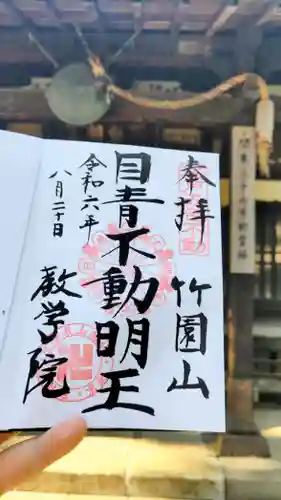 奉拝
竹園山
目青不動明王
令和六年
八月二十日
教学院